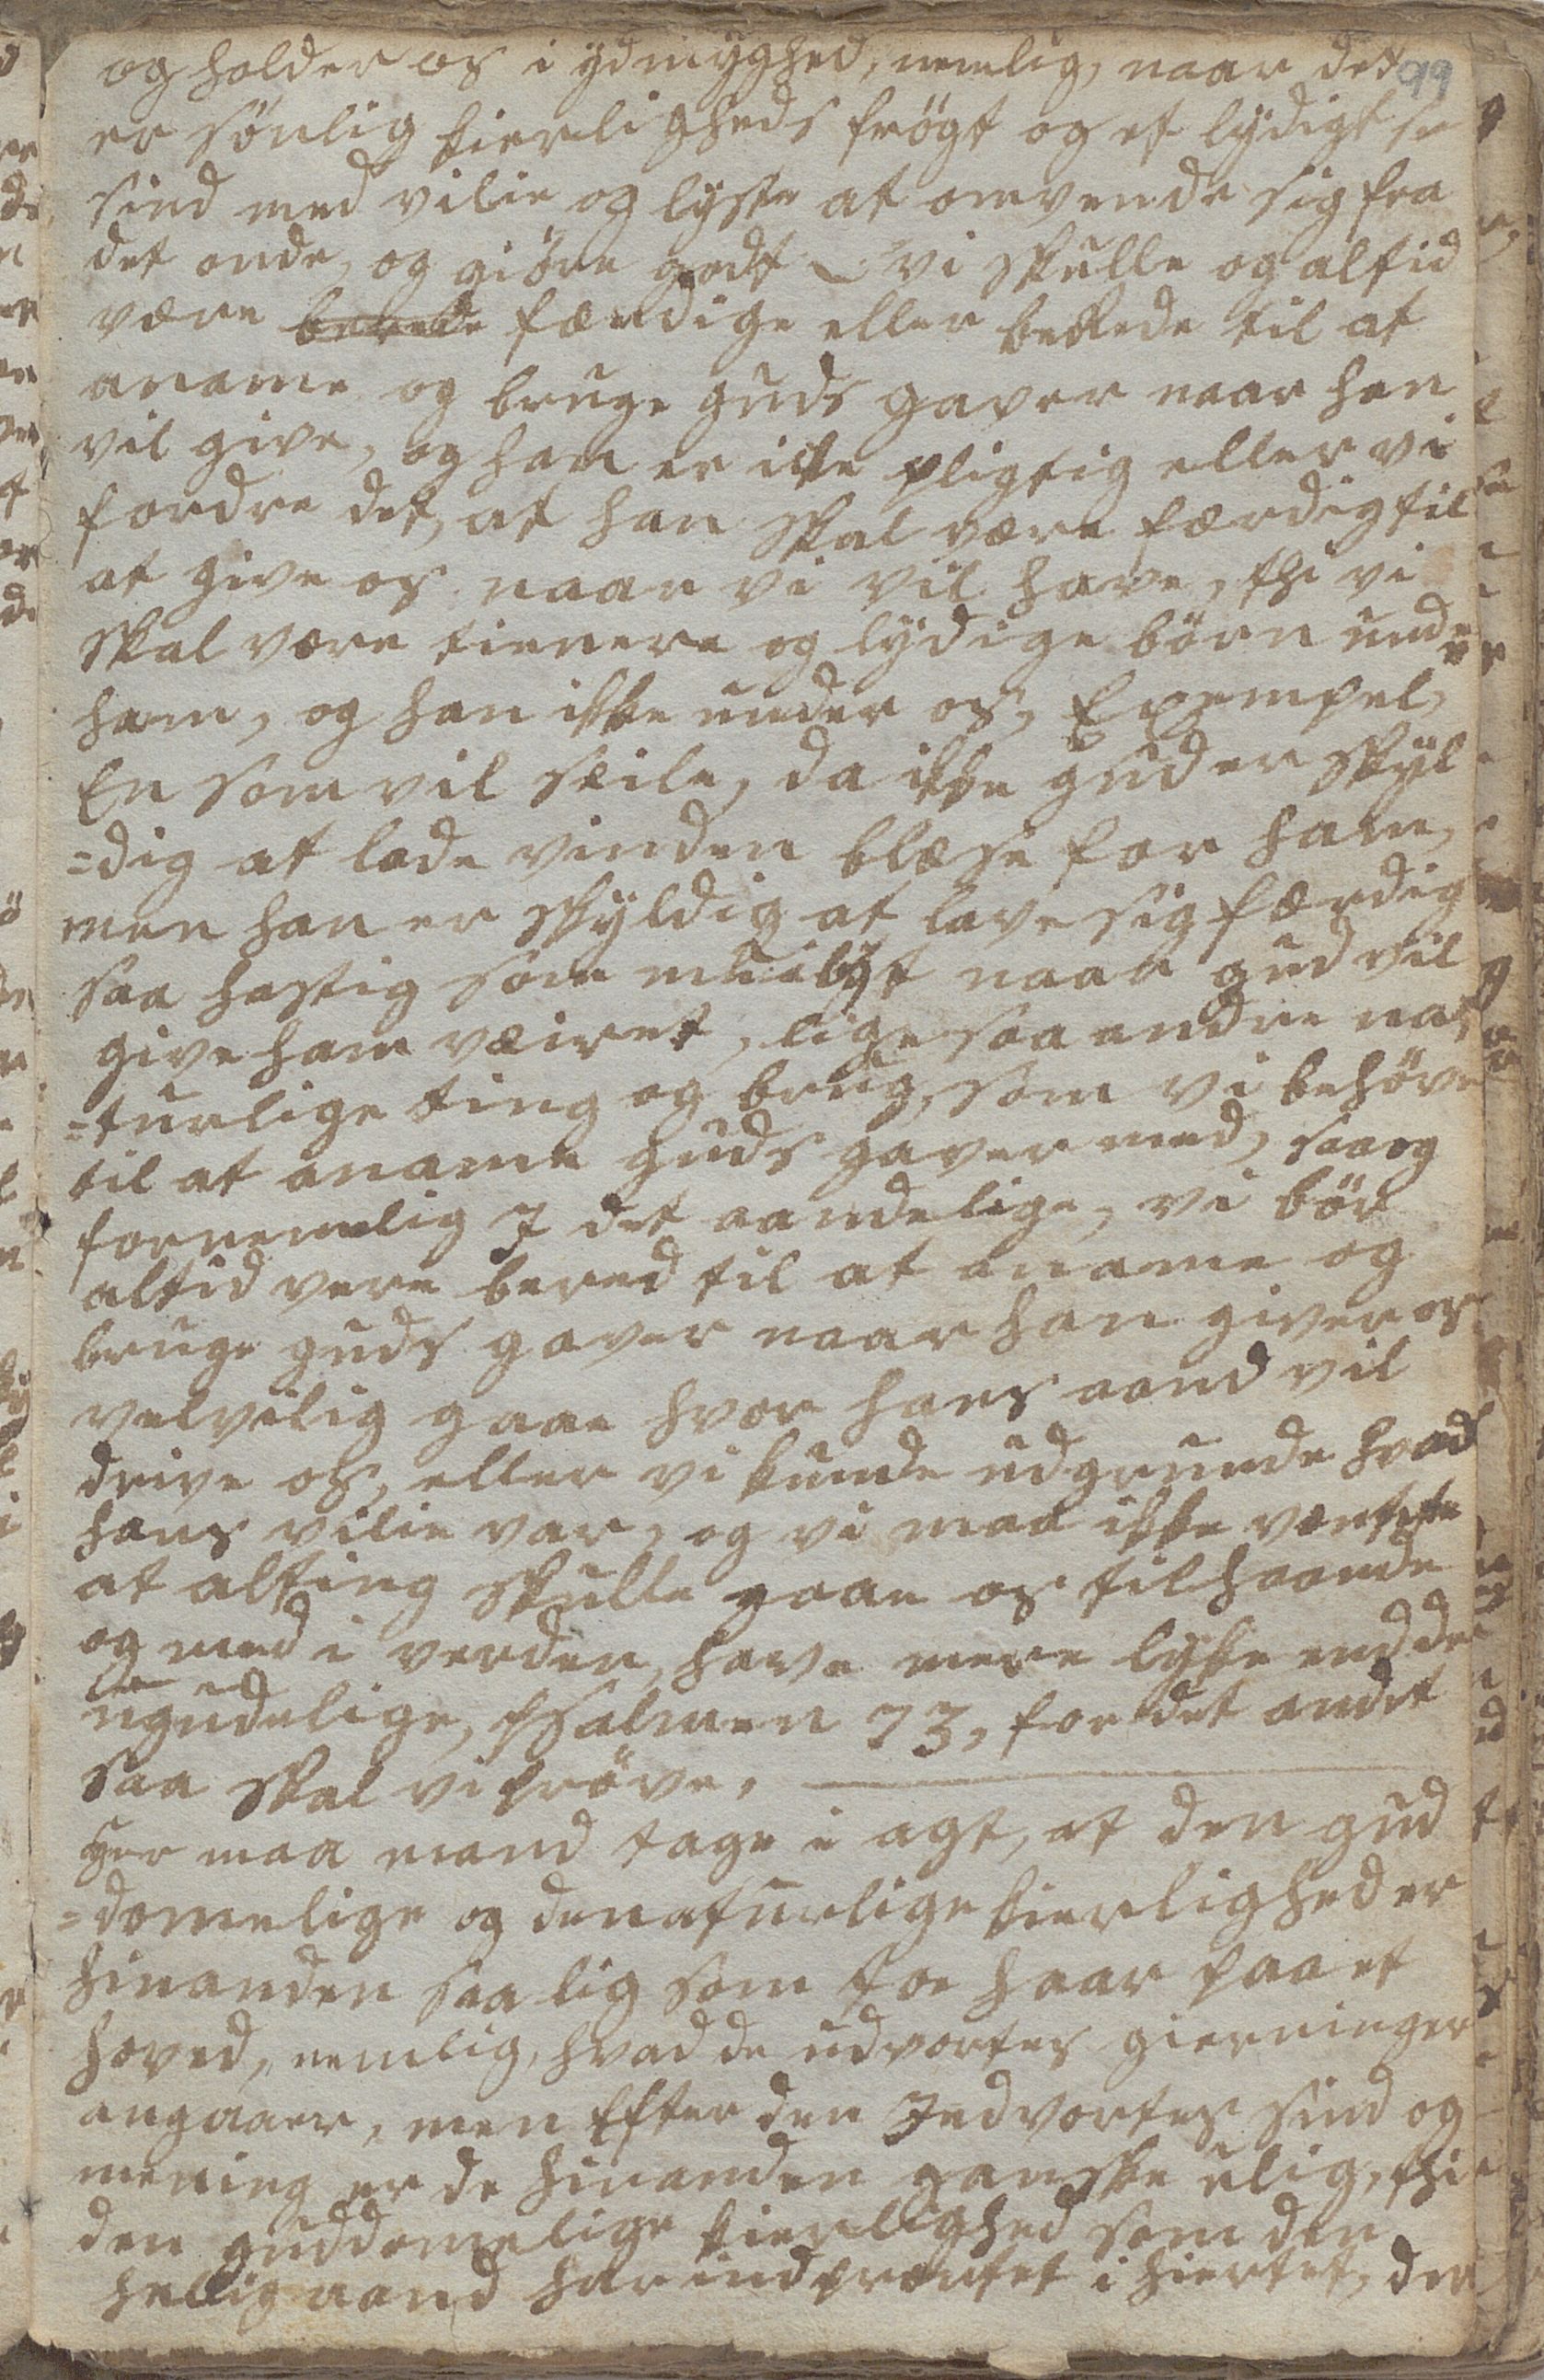 99
og holder os i ydmyghed, nemlig, naar det
er sønlig kierligheds frögt og et lydigt
sind med vilie og lyste at omvende sig fra
det onde, og giöre godt – vi skulle og altid
være berede færdige eller beklede til at
aname og bruge guds gaver naar han
vil give, og han er ikke pligtig eller vi
fordre det, at han skal være færdig til
at give os naar vi vil have, thi vi
skal være tienere og lydige börn under
ham, og han ikke under os, Exempel,
En som vil seile, da ikke gud er skyl
=dig at lade vinden blæse for ham,
men han er skyldig at lave sig færdig
saa hastig som mueligt naar gud vil
give ham væiret, ligesaa andre nat
=turlige ting og brug, som vi behöve
til at aname guds gaver med, saa og
fornemelig I det aandelige, vi bör
altid vere bered til at aname og
bruge guds gaver naar han giver os
velvilig gaae hvor hans aand vil
drive os, eller vi kunde udgrunde hvad
hans vilie var, og vi maa ikke ventte
at alting skulle gaae os tilhaande
og med i verden, have mere lyke end de
ugudelige, Psalmen 73, for det andet
saa skal vi pröve,
Her maa mand tage i agt, at den gud
=domelige og den naturlige kierlighed er
hinanden saa lig som toe haar paa et
hoved, nemlig, hvad de udvortes gierninger
angaaer, men Efter den Indvortes sind og
mening er de hinanden ganske ulig, thi
den guddomelige kierlighed som den
hellig aand har indprentet i hiertet, den